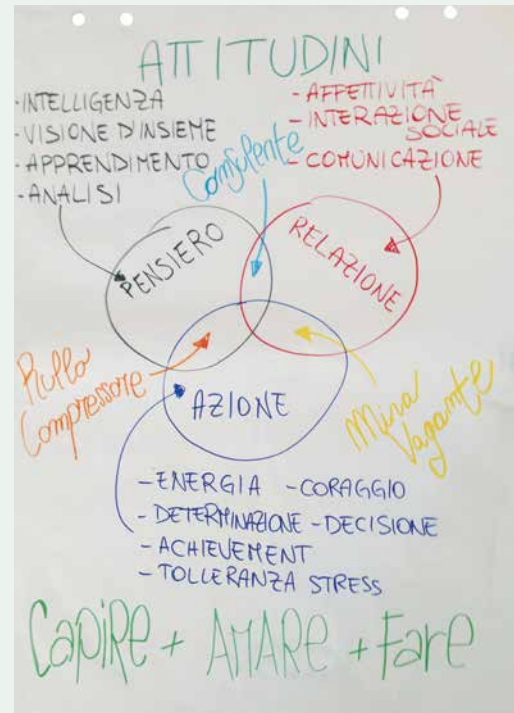 ATTITUDINI
-INTELLIGENZA
-VISIONE D'INSIEME
-APPRENDIMENTO
-ANALISI
-AFFETTIVITÀ
-INTERAZIONE
SOCIALE
-COMUNICAZIONE
Consulente
PENSIERO
RELAZIONE
Rullo
Compressore
AZIONE
Mina
Vagante
-ENERGIA -CORAGGIO
-DETERMINAZIONE -DECISIONE
-ACHIEVEMENT
-TOLLERANZA STRESS
CapiRe + AMARE + FaRe